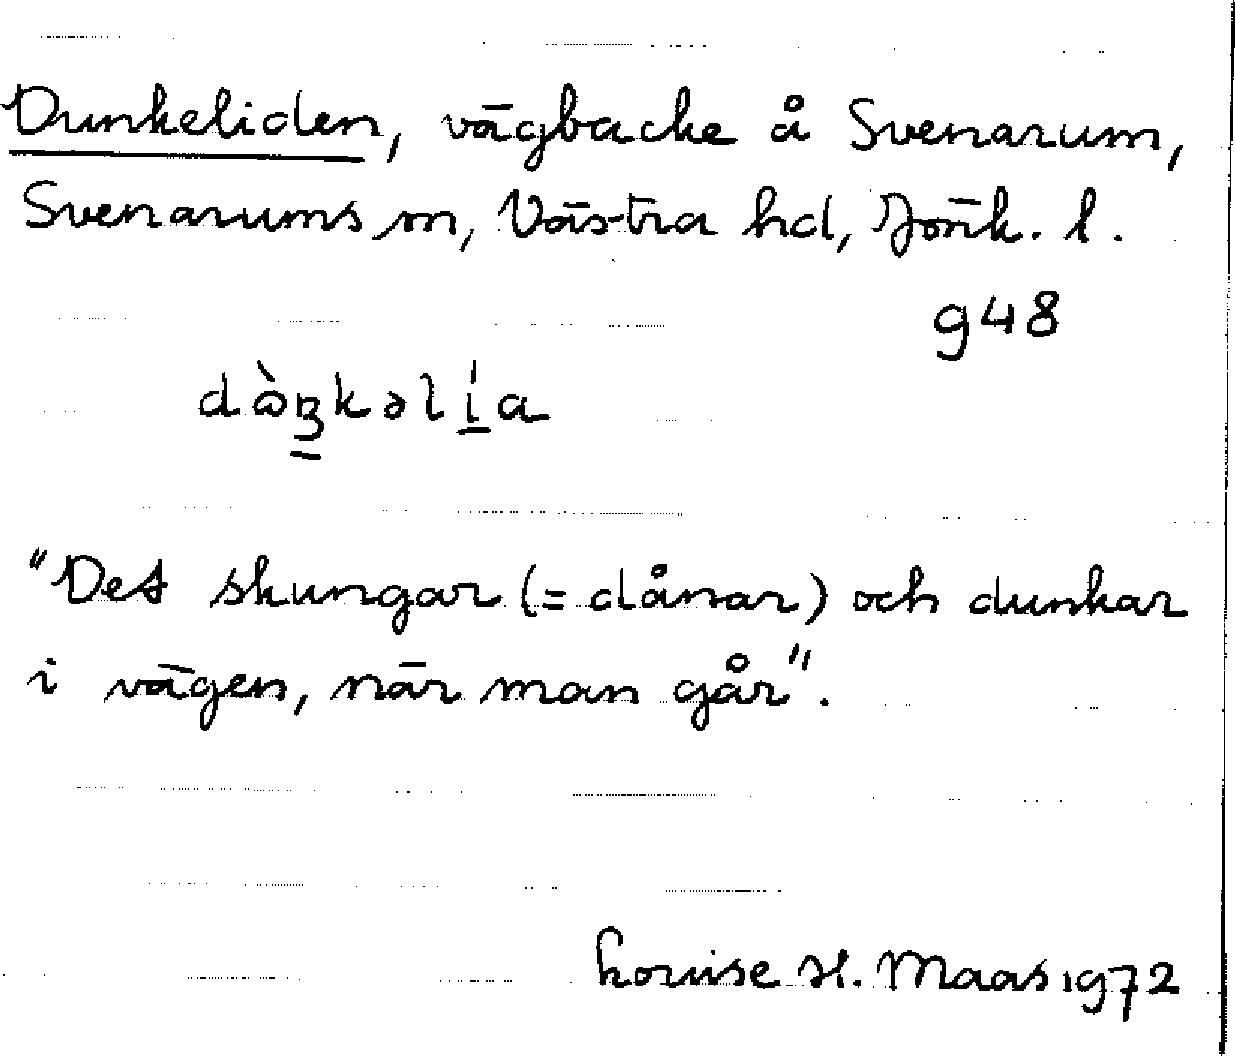 Dunkeliden, vägbacke å Svenarum,
Svenarums sn, Västra hd, Jönk. l.
g48
dὼȵkəlía
"Det skungar (= dånar) och dunkar
i vägen, när man går".
Louise H. Maas 1972